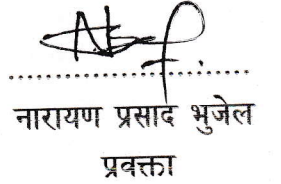 नारायण प्रसाद भुजेल
प्रवक्ता